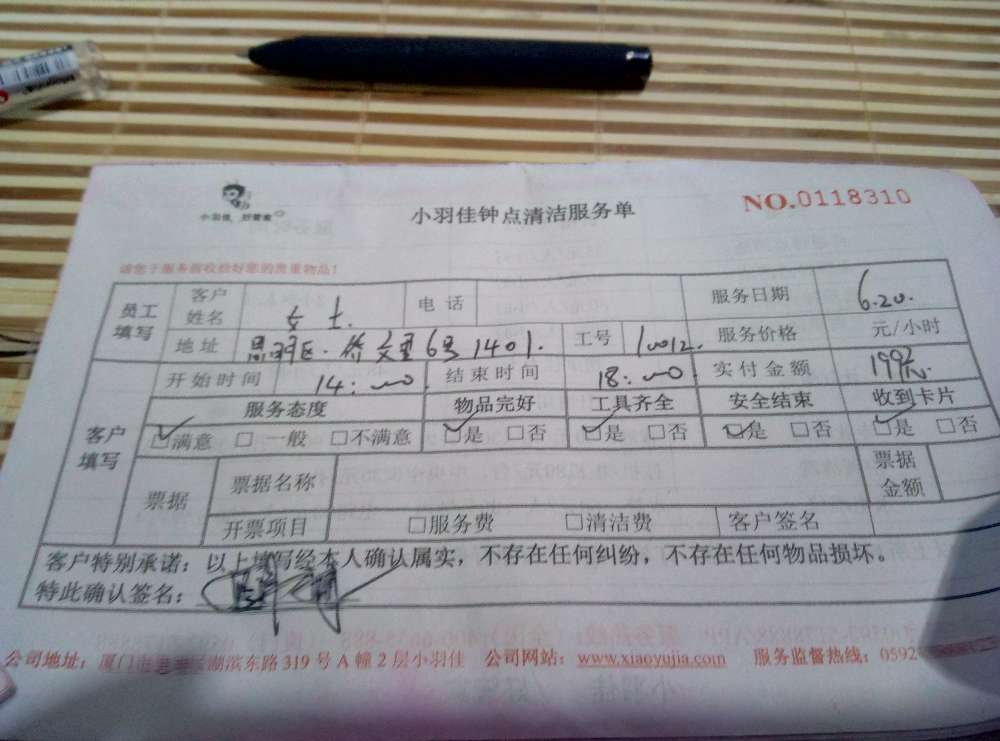 小羽佳 好管家
小羽佳钟点清洁服务单
NO.0118310
请您于服务前收拾好您的贵重物品！
员工填写 客户姓名 女士. 电话 服务日期 6.20.
地址 6号1401. 工号 10012. 服务价格 元/小时
客户填写 开始时间 14:00 结束时间 18:00 实付金额
服务态度 物品完好 工具齐全 安全结束 收到卡片
☑满意 □一般 □不满意 ☑是 □否 ☑是 □否 ☑是 □否 ☑是 □否
票据 票据名称 票据金额
开票项目 □服务费 □清洁费 客户签名
客户特别承诺：以上填写经本人确认属实，不存在任何纠纷，不存在任何物品损坏。
特此确认签名：
公司地址：厦门市思明区湖滨东路 319 号 A 幢 2 层小羽佳 公司网站：www.xiaoyujia.com 服务监督热线：0592